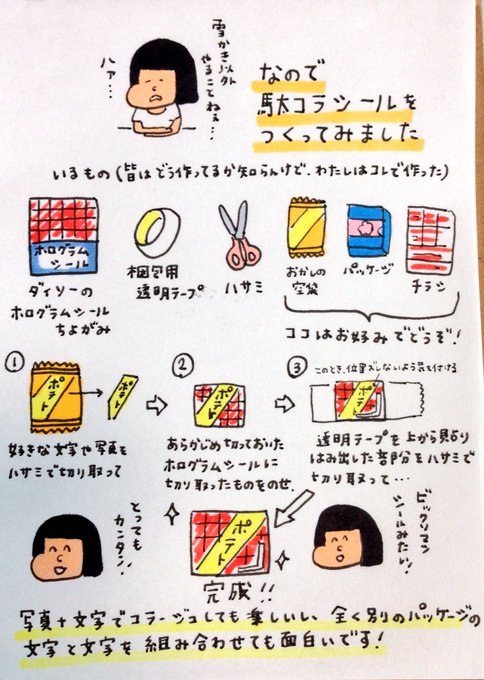 雪かき以外
やることねぇ…
ハァ…
なので
駄コラシールを
つくってみました
いるもの(皆はどう作ってるか知らんけど、わたしはコレで作った)
ホログラム
シール
ダイソーの
ホログラムシール
ちよがみ
梱包用
透明テープ
ハサミ
おかしの
空袋
パッケージ
チラシ
ココはお好みでどうぞ!
①
ポテト
ポテト
好きな文字や写真を
ハサミで切り取って
②
ポテト
あらかじめ切っておいた
ホログラムシールに
切り取ったものをのせ、
③
このとき、位置ズレしないよう気を付ける
ポテト
透明テープを上から貼り
はみ出した部分をハサミで
切り取って…
とっても
カンタン!
ポテト
完成!!
ビックリマン
シールみたい!
写真+文字でコラージュしても楽しいし、全く別のパッケージの
文字と文字を組み合わせても面白いです!